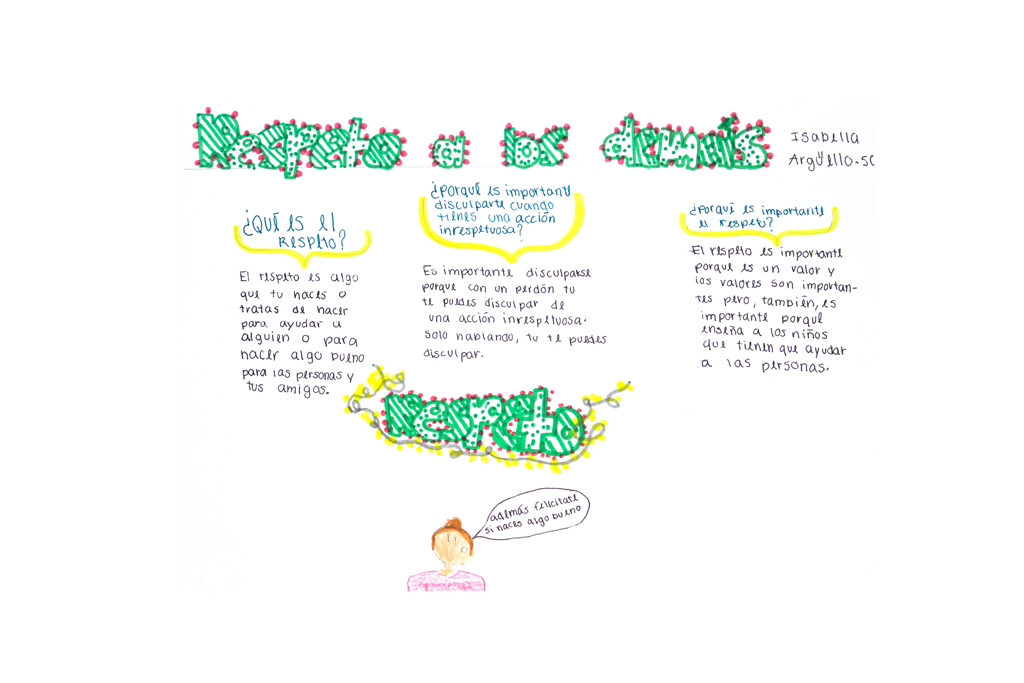 Respeto a los demás
Isabella
Argüello-5C
¿Qué es el
respeto?
El respeto es algo
que tu haces o
tratas de hacer
para ayudar a
alguien o para
hacer algo bueno
para las personas y
tus amigos.
¿Porqué es importante
disculparte cuando
tienes una acción
inrespetuosa?
Es importante disculparse
porque con un perdón tu
te puedes disculpar de
una acción inrespetuosa.
Solo hablando, tu te puedes
disculpar.
¿Porqué es importante
el respeto?
El respeto es importante
porque es un valor y
los valores son importan-
tes pero, también, es
importante porque
enseña a los niños
que tienen que ayudar
a las personas.
Respeto
además felicitate
si haces algo bueno